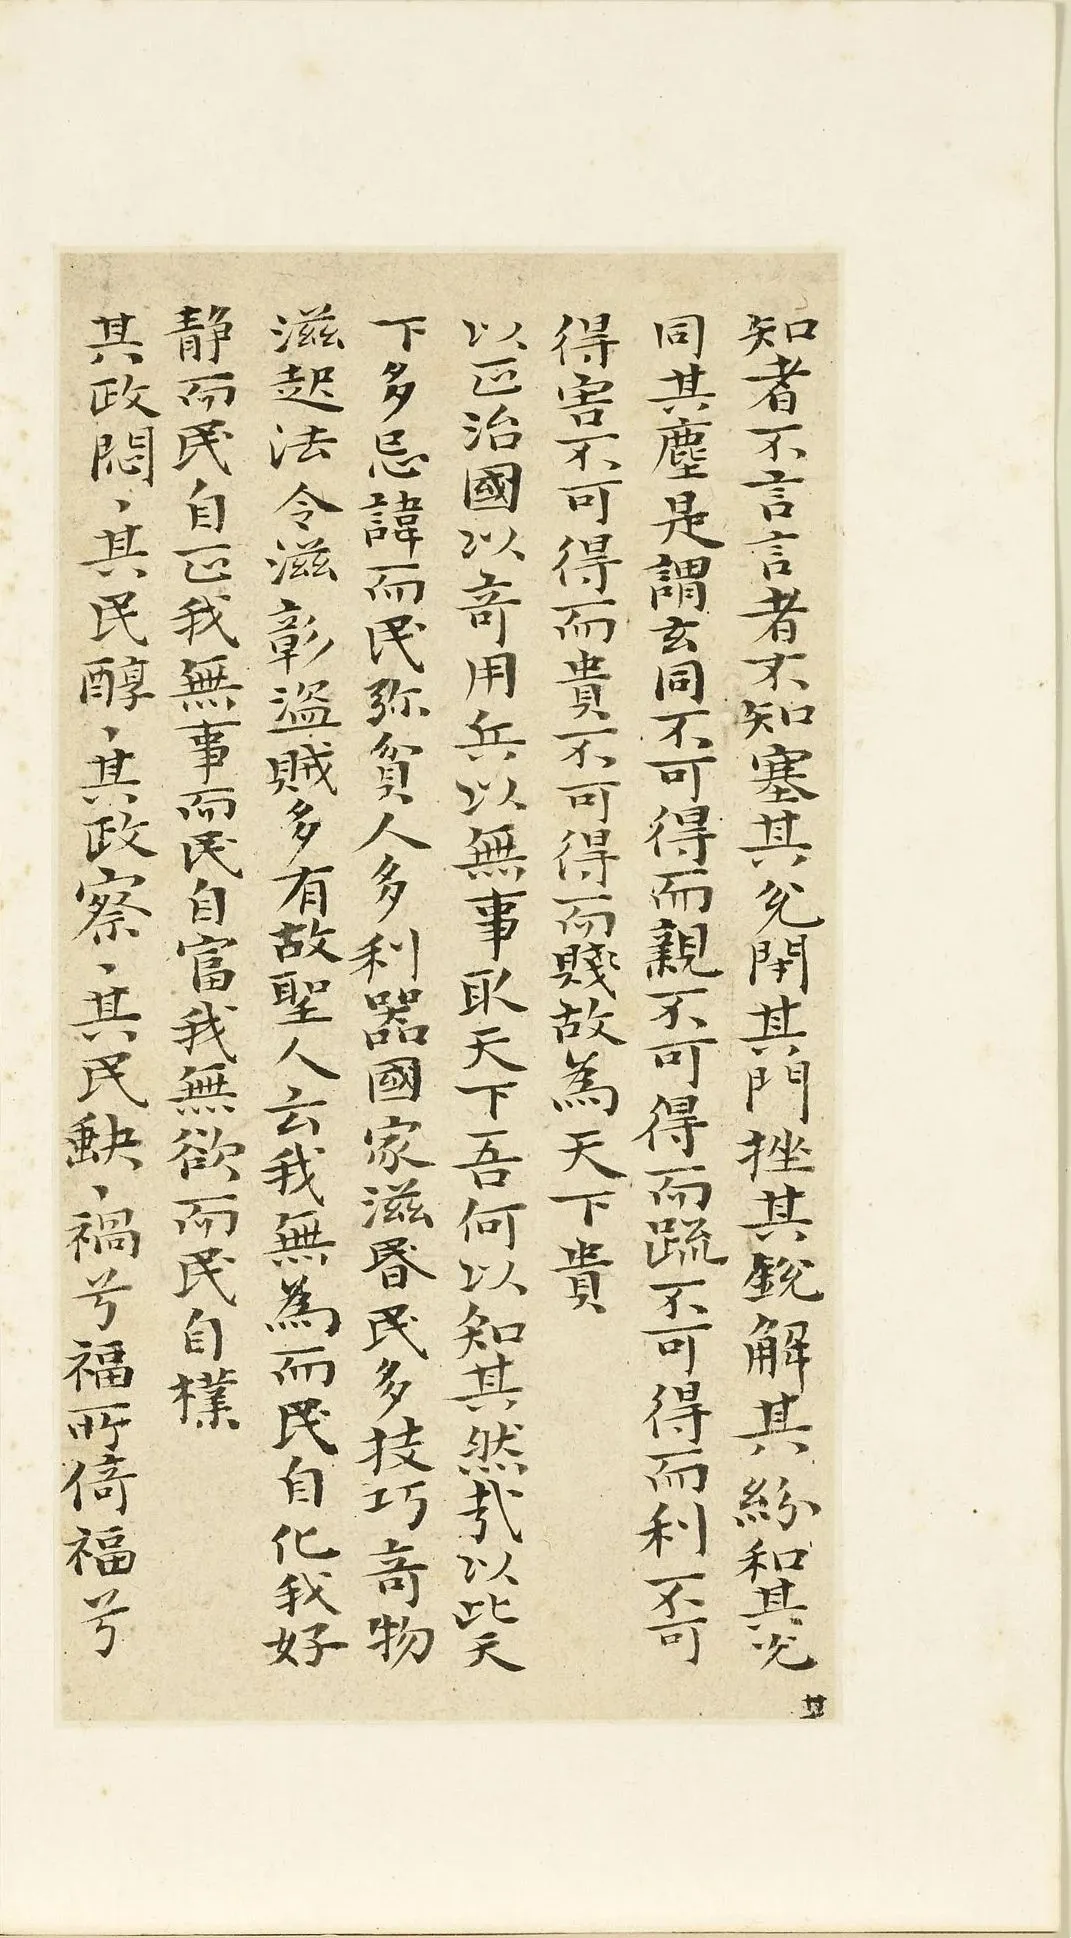 知者不言言者不知塞其兊閇其門挫其銳解其紛和其光
同其塵是謂玄同不可得而親不可得而踈不可得而利不可
得害不可得而貴不可得而賤故為天下貴
以正治國以竒用兵以無事取天下吾何以知其然㢤以此天
下多忌諱而民弥貧人多利器國家滋昬民多技巧竒物
滋起法令滋彰盜賊多有故聖人云我無為而民自化我好
静而民自正我無事而民自富我無欲而民自樸
其政悶〻其民醇〻其政察〻其民缺〻禍兮福所倚福兮
廿